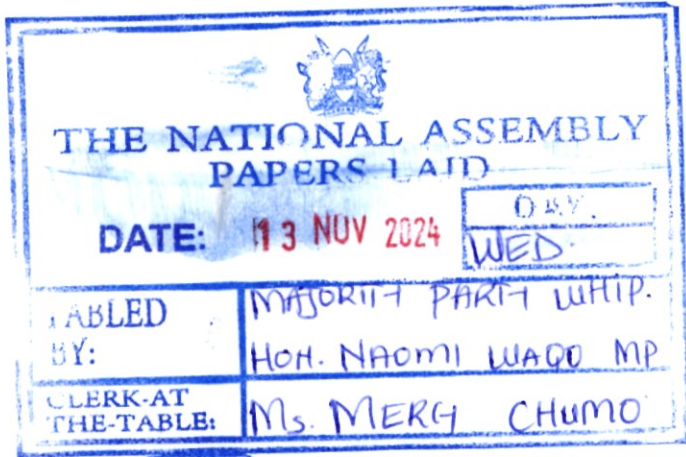 THE NATIONAL ASSEMBLY
PAPERS LAID
DATE: 13 NOV 2024
DAY.
WED.
TABLED
BY:
MAJORITY PARTY WHIP.
HON. NAOMI WAQO MP
CLERK-AT
THE-TABLE:
Ms. MERCY CHUMO